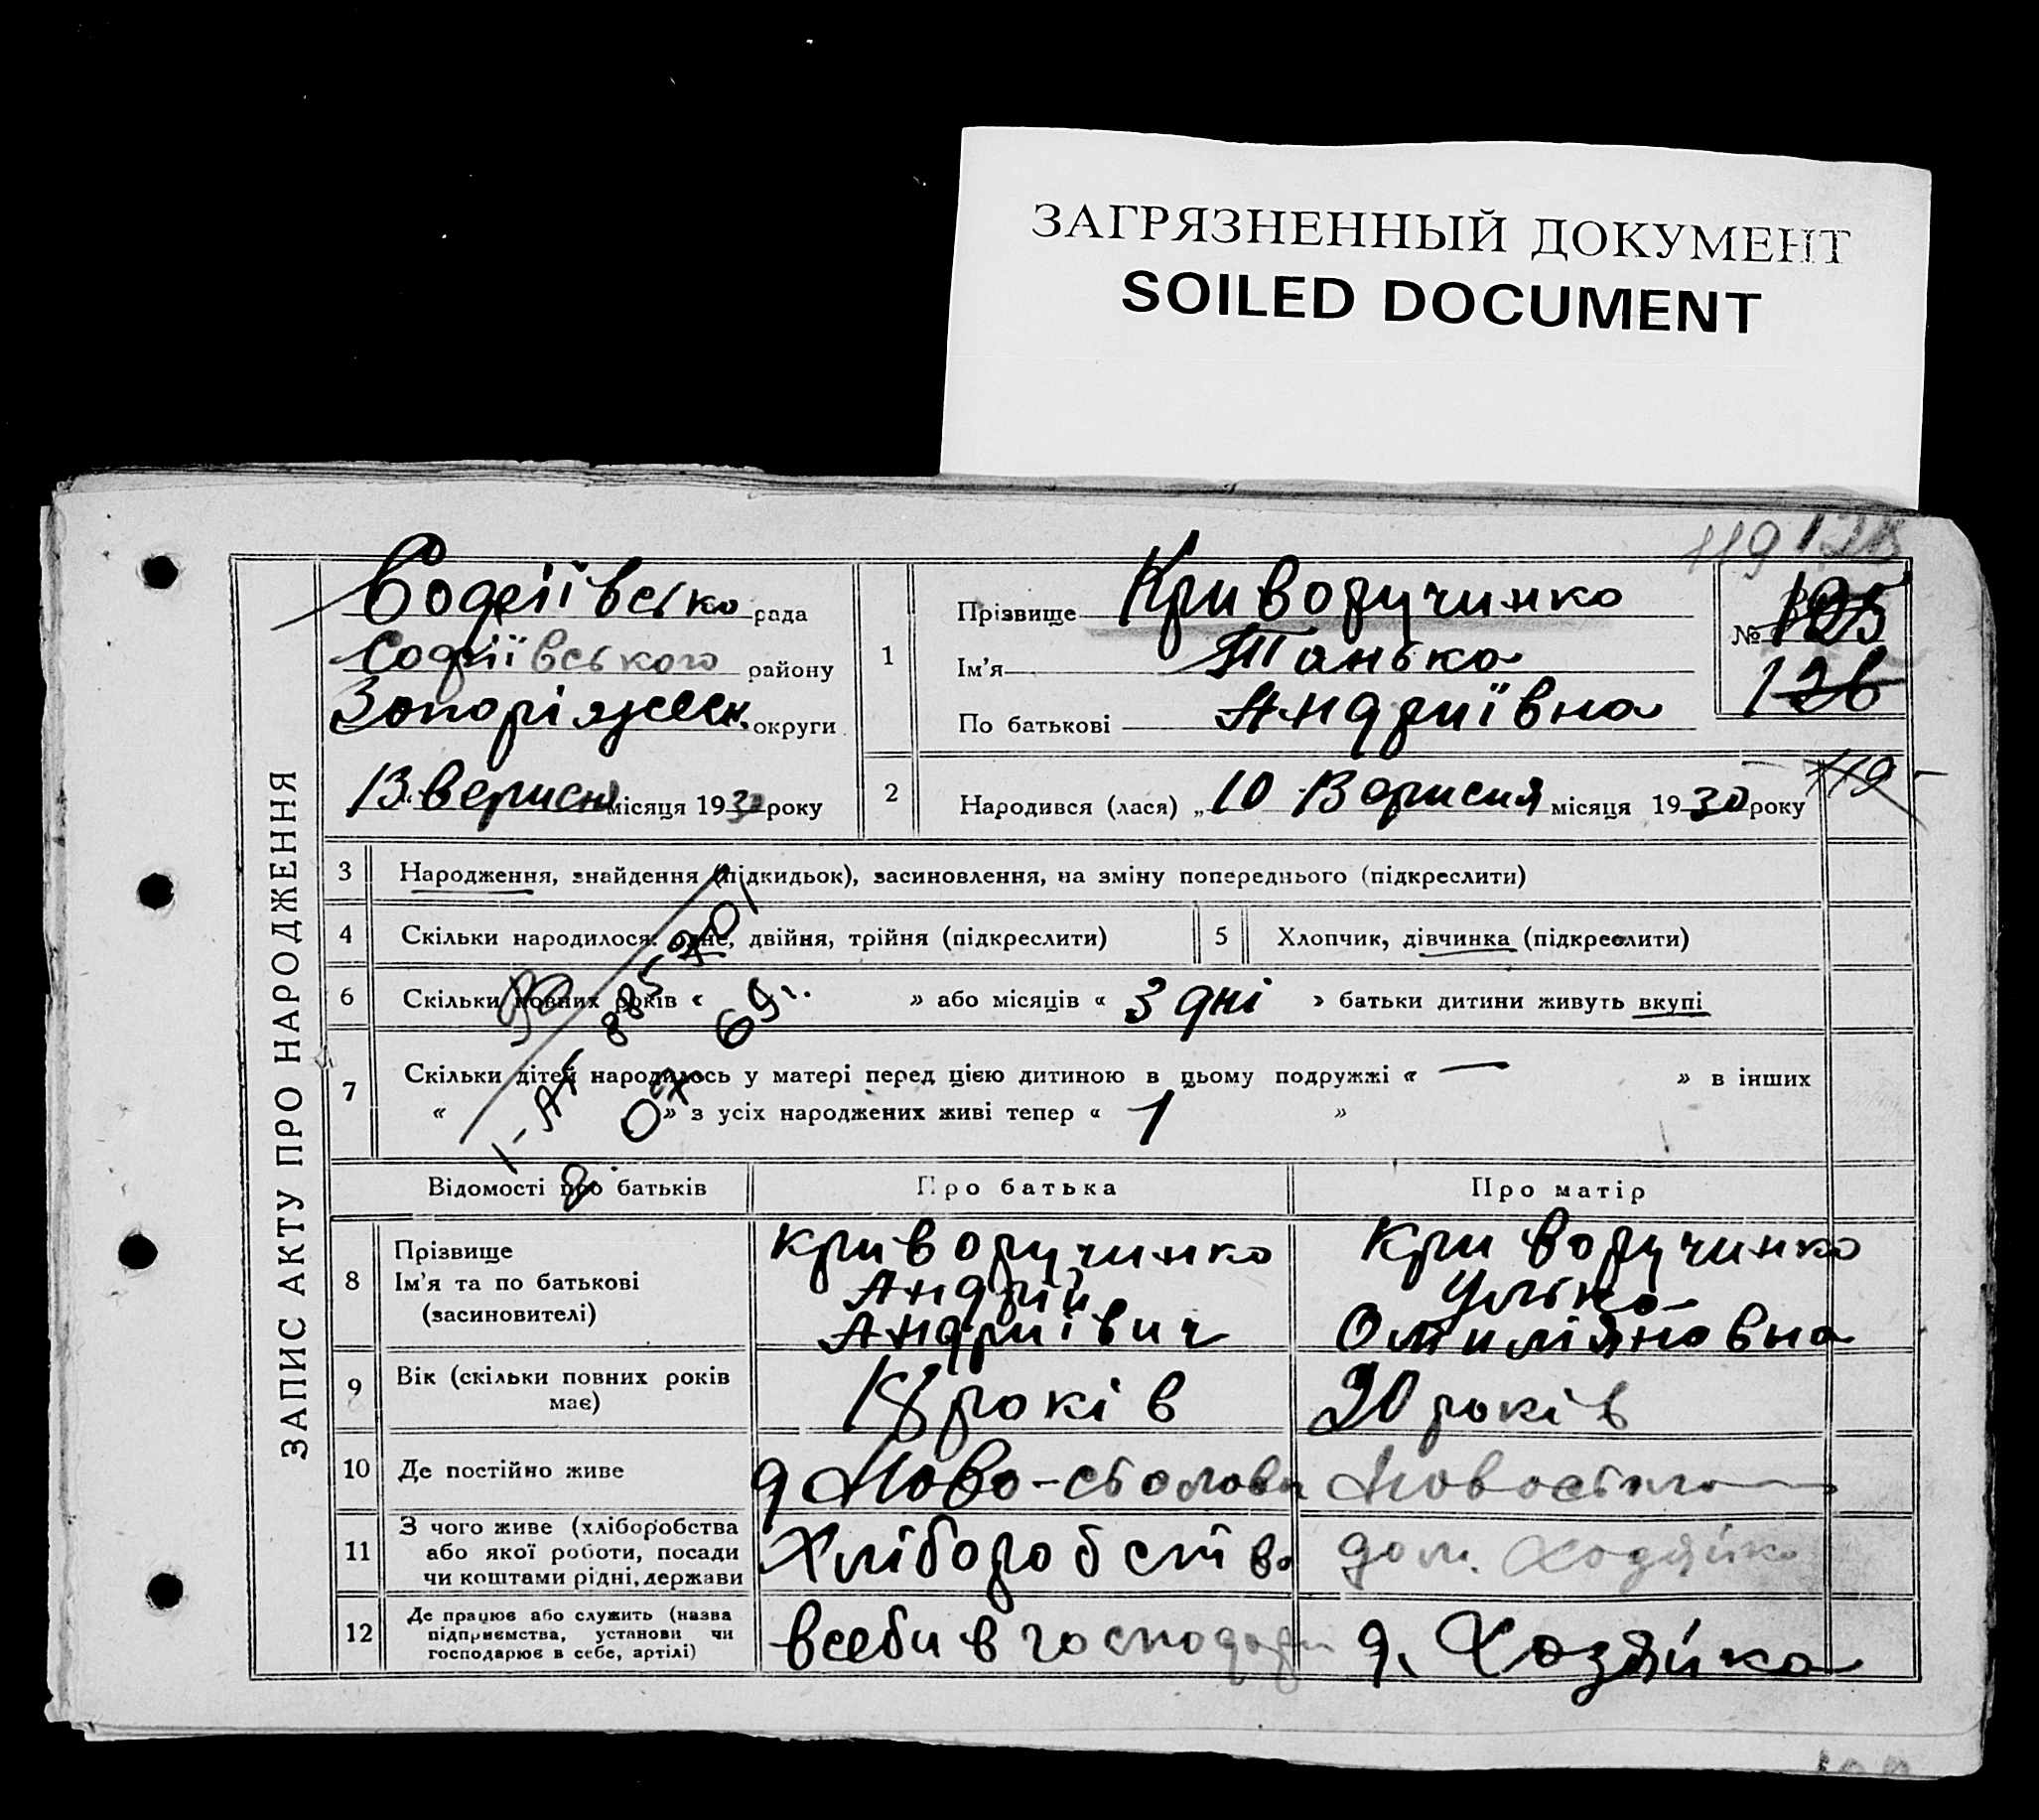 ЗАГРЯЗНЕННЫЙ ДОКУМЕНТ
SOILED DOCUMENT
119
ЗАПИС АКТУ ПРО НАРОДЖЕННЯ
Софіївсько рада
Софіївського району
округи
13 вересн місяця 1930 року
1
Прізвище Криворучинко
Ім'я Танька
По батькові Андриївна
№ 125
126
119
2
Народився (лася) „ 10 Вересня місяця 1930 року
3 Народження, знайдення (підкидьок), засиновлення, на зміну попереднього (підкреслити)
4 Скільки народилося: одне, двійня, трійня (підкреслити)
5 Хлопчик, дівчинка (підкреслити)
6 Скільки повних років « » або місяців « 3 дні » батьки дитини живуть вкупі
7 Скільки дітей народилось у матері перед цією дитиною в цьому подружжі « — » в інших
« » з усіх народжених живі тепер « 1 »
69 г.
Відомості про батьків
Про батька
Про матір
8 Прізвище
Ім'я та по батькові
(засиновителі)
Криворучинко
Андрій
Андриівич
Криворучинко
Улька
Омиляновна
9 Вік (скільки повних років
має)
18 років
20 років
10 Де постійно живе
11 З чого живе (хліборобства
або якої роботи, посади
чи коштами рідні, держави
Хліборобство
дом. Хозяйка
12 Де працює або служить (назва
підприємства, установи чи
господарює в себе, артілі)
всеби в господарстві
д. Хозяйка